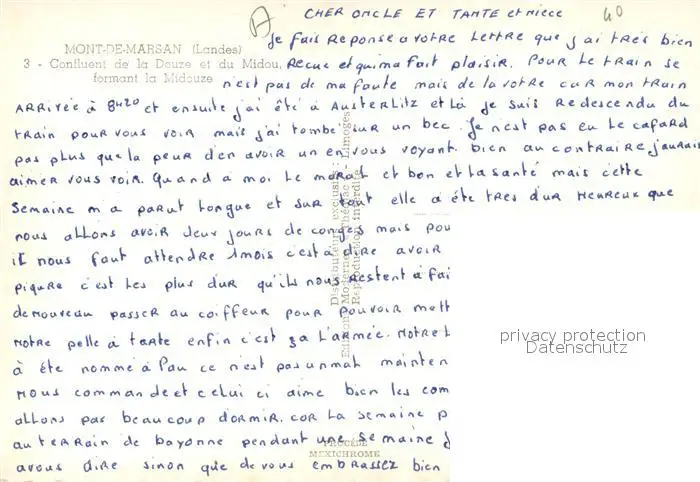 CHER ONCLE ET TANTE et niece
40
Je fais REPONSE a VOTRE LETTRE que j ai TRES bien
MONT-DE-MARSAN (Landes)
3 - Confluent de la Douze et du Midou,
formant la Midouze
RECUE et qui ma fait plaisir. POUR LE TRAIN SE
n'est pas de ma faute mais de la votre car mon train
ARRIVÉE à 8H20 et ensuite j'ai été à AUSTERLITZ et là je suis REdescendu du
train pour vous voir mais j'ai tombé sur un bec. Je n'est pas eu LE cafard
pas plus que la peur d'en avoir un en vous voyant bien au contraire j'aurais
aimer vous voir. Quand a moi LE MORAL et bon et la santé mais cette
SEMAINE m a parut longue et sur tout elle a été TRES dur HEUREUX que
nous allons avoir deux jours de conges mais pou
il nous faut attendre 1mois c'est à dire avoir
piqure c'est les plus dur qu'ils nous RESTENT à fai
de nouveau passer au coiffeur pour pouvoir mett
NOTRE pelle à tarte enfin c'est ça L'ARMÉE. NOTRE L
à été nommé à Pau ce n'est pas un mal mainten
nous commande et celui ci aime bien les com
allons pas beaucoup dormir. car la semaine p
au terrain de bayonne pendant une semaine J
avous dire sinon que de vous embrassez bien
PROCÉDÉ
MEXICHROME
Reproduction interdite
privacy protection
Datenschutz